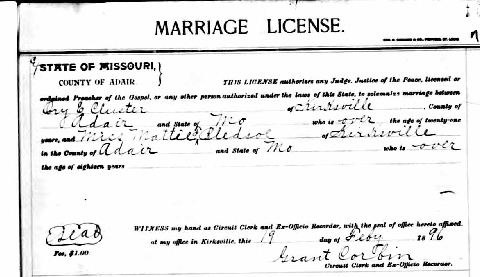 MARRIAGE LICENSE.
STATE OF MISSOURI,
COUNTY OF ADAIR.
THIS LICENSE authorizes any Judge, Justice of the Peace, licensed or
ordained Preacher of the Gospel, or any other person authorized under the laws of this State, to solemnize marriage between
Ory G Cluster of Kirksville, County of
Adair and State of Mo who is over the age of twenty-one
years, and Miss Mattie Bledsoe of Kirksville
in the County of Adair and State of Mo who is over
the age of eighteen years
WITNESS my hand as Circuit Clerk and Ex-Officio Recorder, with the seal of office hereto affixed,
Seal at my office in Kirksville, this 19 day of Feby 1896
Fee, $1.00 Grant Corbin
Circuit Clerk and Ex-Officio Recorder.